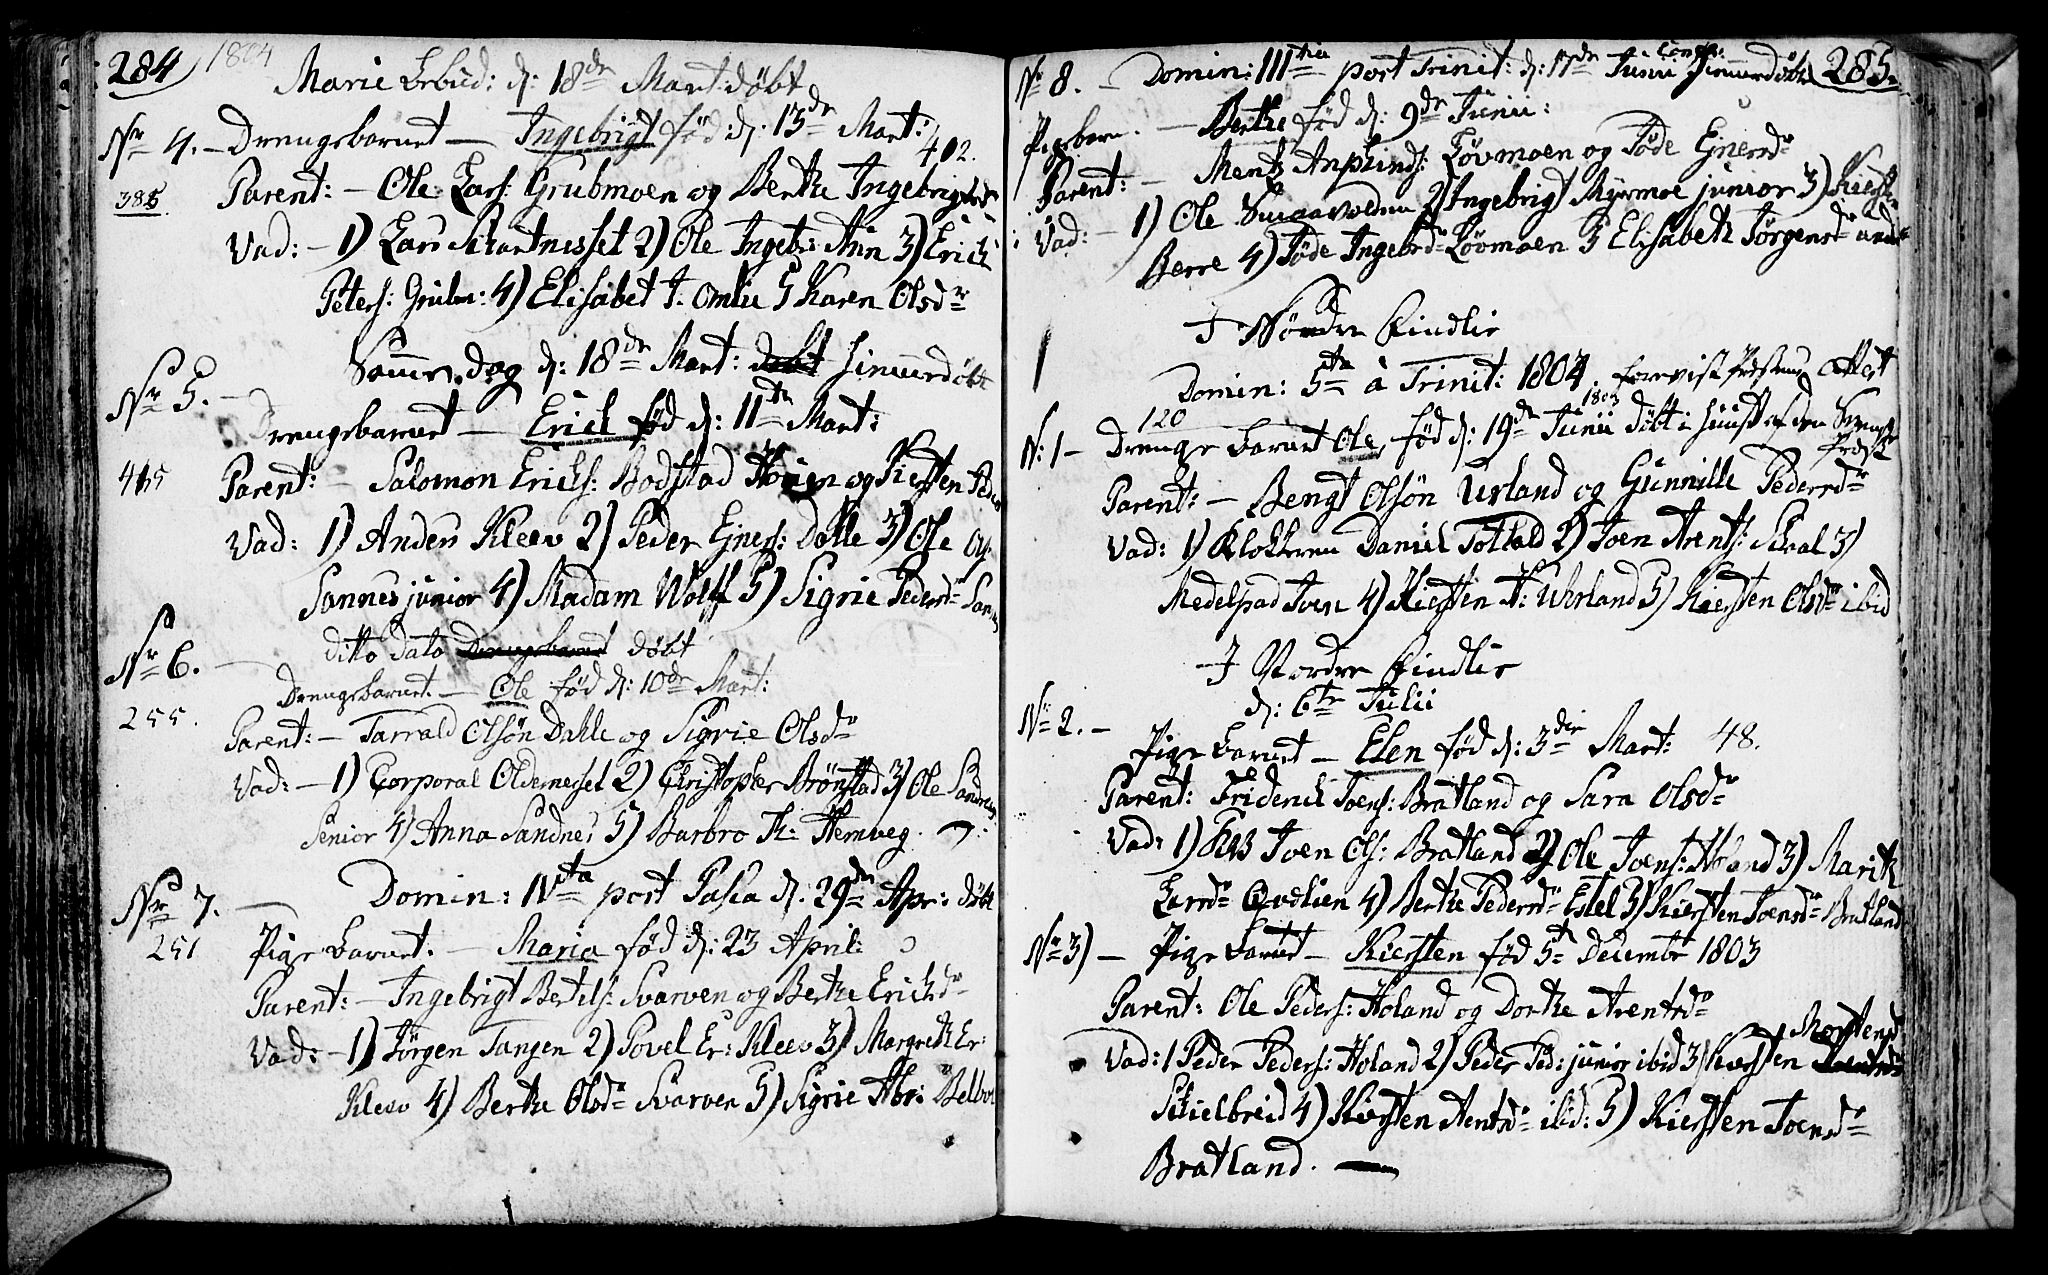 284 1804
Marie Bebud: d: 18de Mart. döbt
Nr 4. - Drengebarnet - Ingebrigt föd: d: 13de Mart: 402.
385. Parent: - Ole Lars: Grubmoen og Berthe Ingebrigtsdr
Vad: - 1) Lars Skartnesset 2) Ole Ingebr: Aun 3) Erich
Peters: Grubm: 4) Elisabet J. Omlie 5 Karen Olsdr
d: 18de Mart: döbt Hiemmedöbt
Nr 5. -
Drengebarnet - Erich föd d: 11te Mart:
415 Parent: - Salomon Erichs: Bodstad Moen og Kiersten Peders
Vad: 1) Anders Kleev 2) Peder Ejners: Dalle 3) Ole Ols
Sannes junior 4) Madam Wolff 5) Sigrie Pedersdr San
Nr 6. - ditto dato Drengebarnet döbt
Drengebarnet. - Ole föd d: 10de Mart:
255. Parent: - Tarrald Olsön Dahle og Sigrie Olsdr
Vad: - 1) Corporal Oldernesset 2) Christopher Brönstad 3) Ole Sandnes
Senior 4) Anna Sandnes 5) Barbro Th: Hemveg.
Nr 7. - Domin: IVta post Pasca d: 29de Apr: döbt
251 Pige barnet. - Maria föd d: 23 April:
Parent: - Ingebrigt Bertels: Svarven og Berthe Erichsdr
Vad: - 1) Jörgen Tangen 2) Povel Er: Kleev 3) Margreth Er:
Kleev 4) Berthe Olsdr Svarven 5) Sigrie Abr: Belbo
285.
Nr 8. - Domin: IIItia post Trinit: d: 17de Junii Hiemmedöbt
Pigebarn. - Berthe föd d: 9de Junii:
Parent: - Mentz Anphinds: Lövmoen og Töde Ejnersdr
Vad: - 1) Ole Smaavolden 2) Ingebrigt Myrmoe junior 3)
Berre 4) Töde Ingebrdr Lövmoen 5 Elisabeth Jörgensdr
I Nördre Findlie
Domin: 5ta à Trinit: 1804. forevist Præstens Attest
120 1803
N: 1 - Drenge barnet Ole, föd d: 19de Junii döbt i Huuset af den Svenske
Præst
Parent: - Bengt Olsön Urland og Gunnille Pedersdr
Vad: 1) Klokkeren Daniel Totland 2) Joen Arents: Skral 3)
Medelpad Joen 4) Kiersten A: Uhrland 5) Kiersten Olsdr ibid
I Nordre Findlie
d: 6te Julii
Nr 2. -
Pige barnet - Elen föd d: 3die Mart: 48.
Parent: Friderich Joens: Bratland og Sara Olsdr
Vad: 1) Joen Ols: Bratland 2) Ole Joens: Holand 3) Marith
Larsdr Qvelien 4) Berthe Pedersdr Estel 5) Kiersten Joensdr Bratland
Nr 3) - Pige barnet - Kiersten föd 5te Decembr 1803
Parent: Ole Peders: Holand og Dorthe Arentsdr
Mortensd
Vad: 1 Peder Peders: Holand 2) Peder Ped: junior ibid 3) Kiersten
Skielbreid 4) Kiersten Arentsdr ibid: 5) Kiersten Joensdr
Bratland.